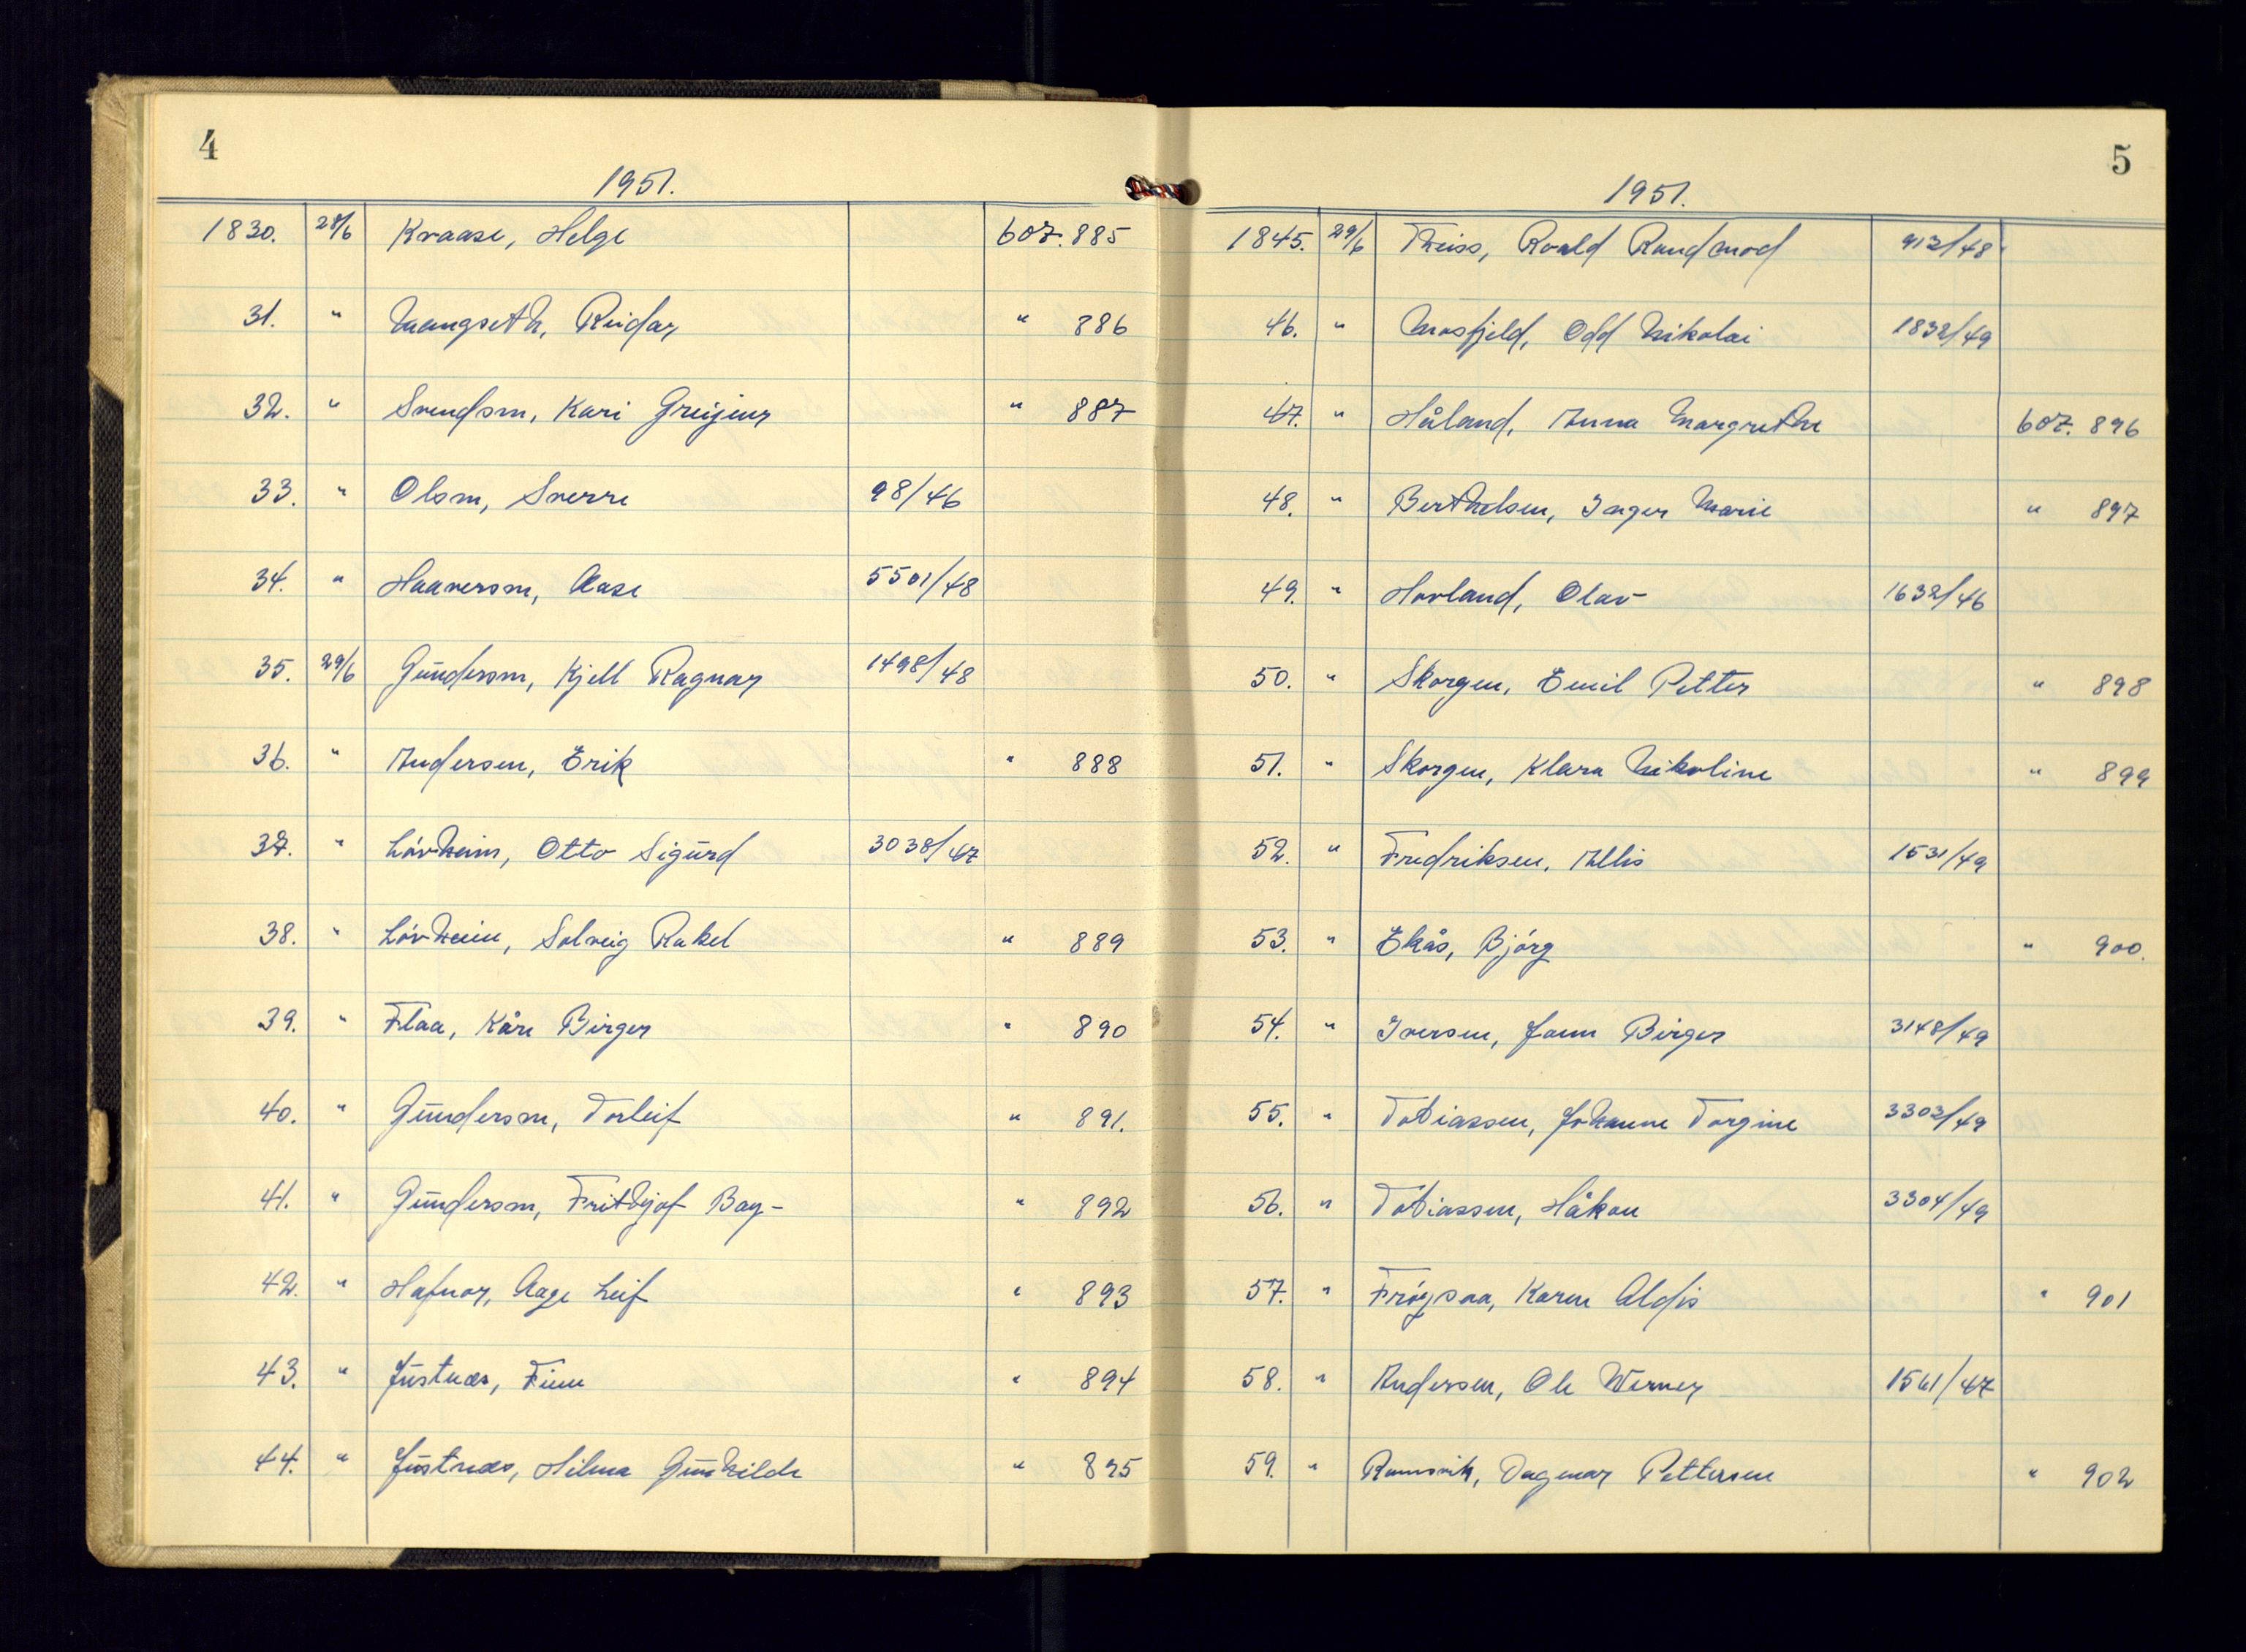 4
1951.
1830. 28/6 Kraase, Helge 607.885
31. " Mangseth, Reidar " 886
32. " Svendsen, Kari Greijer " 887
33. " Olsen, Sverre 98/46
34. " Haaversen, Aase 5501/48
35. 29/6 Gundersen, Kjell Ragnar 1498/48
36. " Andersen, Erik " 888
37. " Lövheim, Otto Sigurd 3038/47
38. " Lövheim, Solveig Rakel " 889
39. " Flaa, Kåre Birger " 890
40. " Gundersen, Torleif " 891.
41. " Gundersen, Frithjof Bay- " 892
42. " Hafnor, Aage Leif " 893
43. " Justnæs, Finn " 894
44. " Justnæs, Hilma Gunhilde " 895
5
1951.
1845. 29/6 Theiss, Roald Raudmod 912/48
46. " Mosfjeld, Odd Nikolai 1832/49
47. " Håland, Anna Margrethe 607. 896
48. " Berthelsen, Inger Marie " 897
49. " Hovland, Olav 1632/46
50. " Skorgen, Emil Petter " 898
51. " Skorgen, Klara Nikoline " 899
52. " Fredriksen, Allis 1531/49
53. " Ekås, Bjórg " 900.
54. " Iversen, Jonn Birger 3148/49
55. " Tobiassen, Johanne Torgine 3303/49
56. " Tobiassen, Håkon 3304/49
57. " Fróysaa, Karen Aldis " 901
58. " Andersen, Ole Werner 1561/47
59. " Ramsvik, Dagmar Pettersen " 902